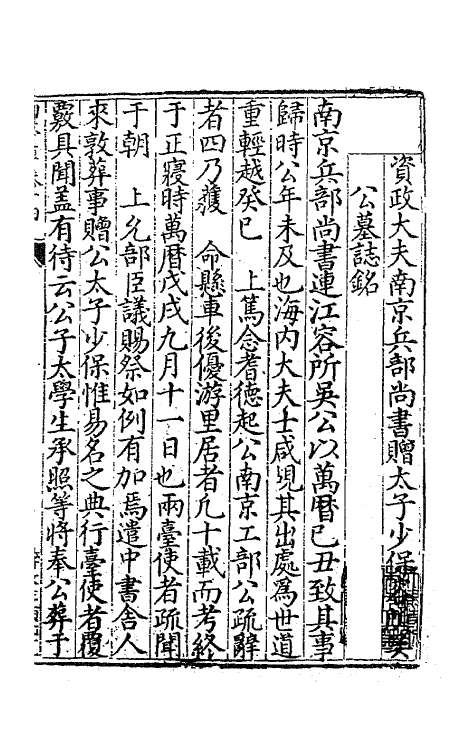 資政大夫南京兵部尚書贈太子少保容所吳
公墓誌銘
南京兵部尚書連江容所吳公以萬曆己丑致其事
歸時公年未及也海內大夫士咸覘其出處為世道
重輕越癸巳　上篤念耆德起公南京工部公疏辭
者四乃獲　命縣車後優游里居者凡十載而考終
于正寢時萬曆戊戌九月十一日也兩臺使者疏聞
于朝　上允部臣議賜祭如例有加焉遣中書舍人
來敦葬事贈公太子少保惟易名之典行臺使者覆
覈具聞盖有待云公子太學生承照等將奉公葬于